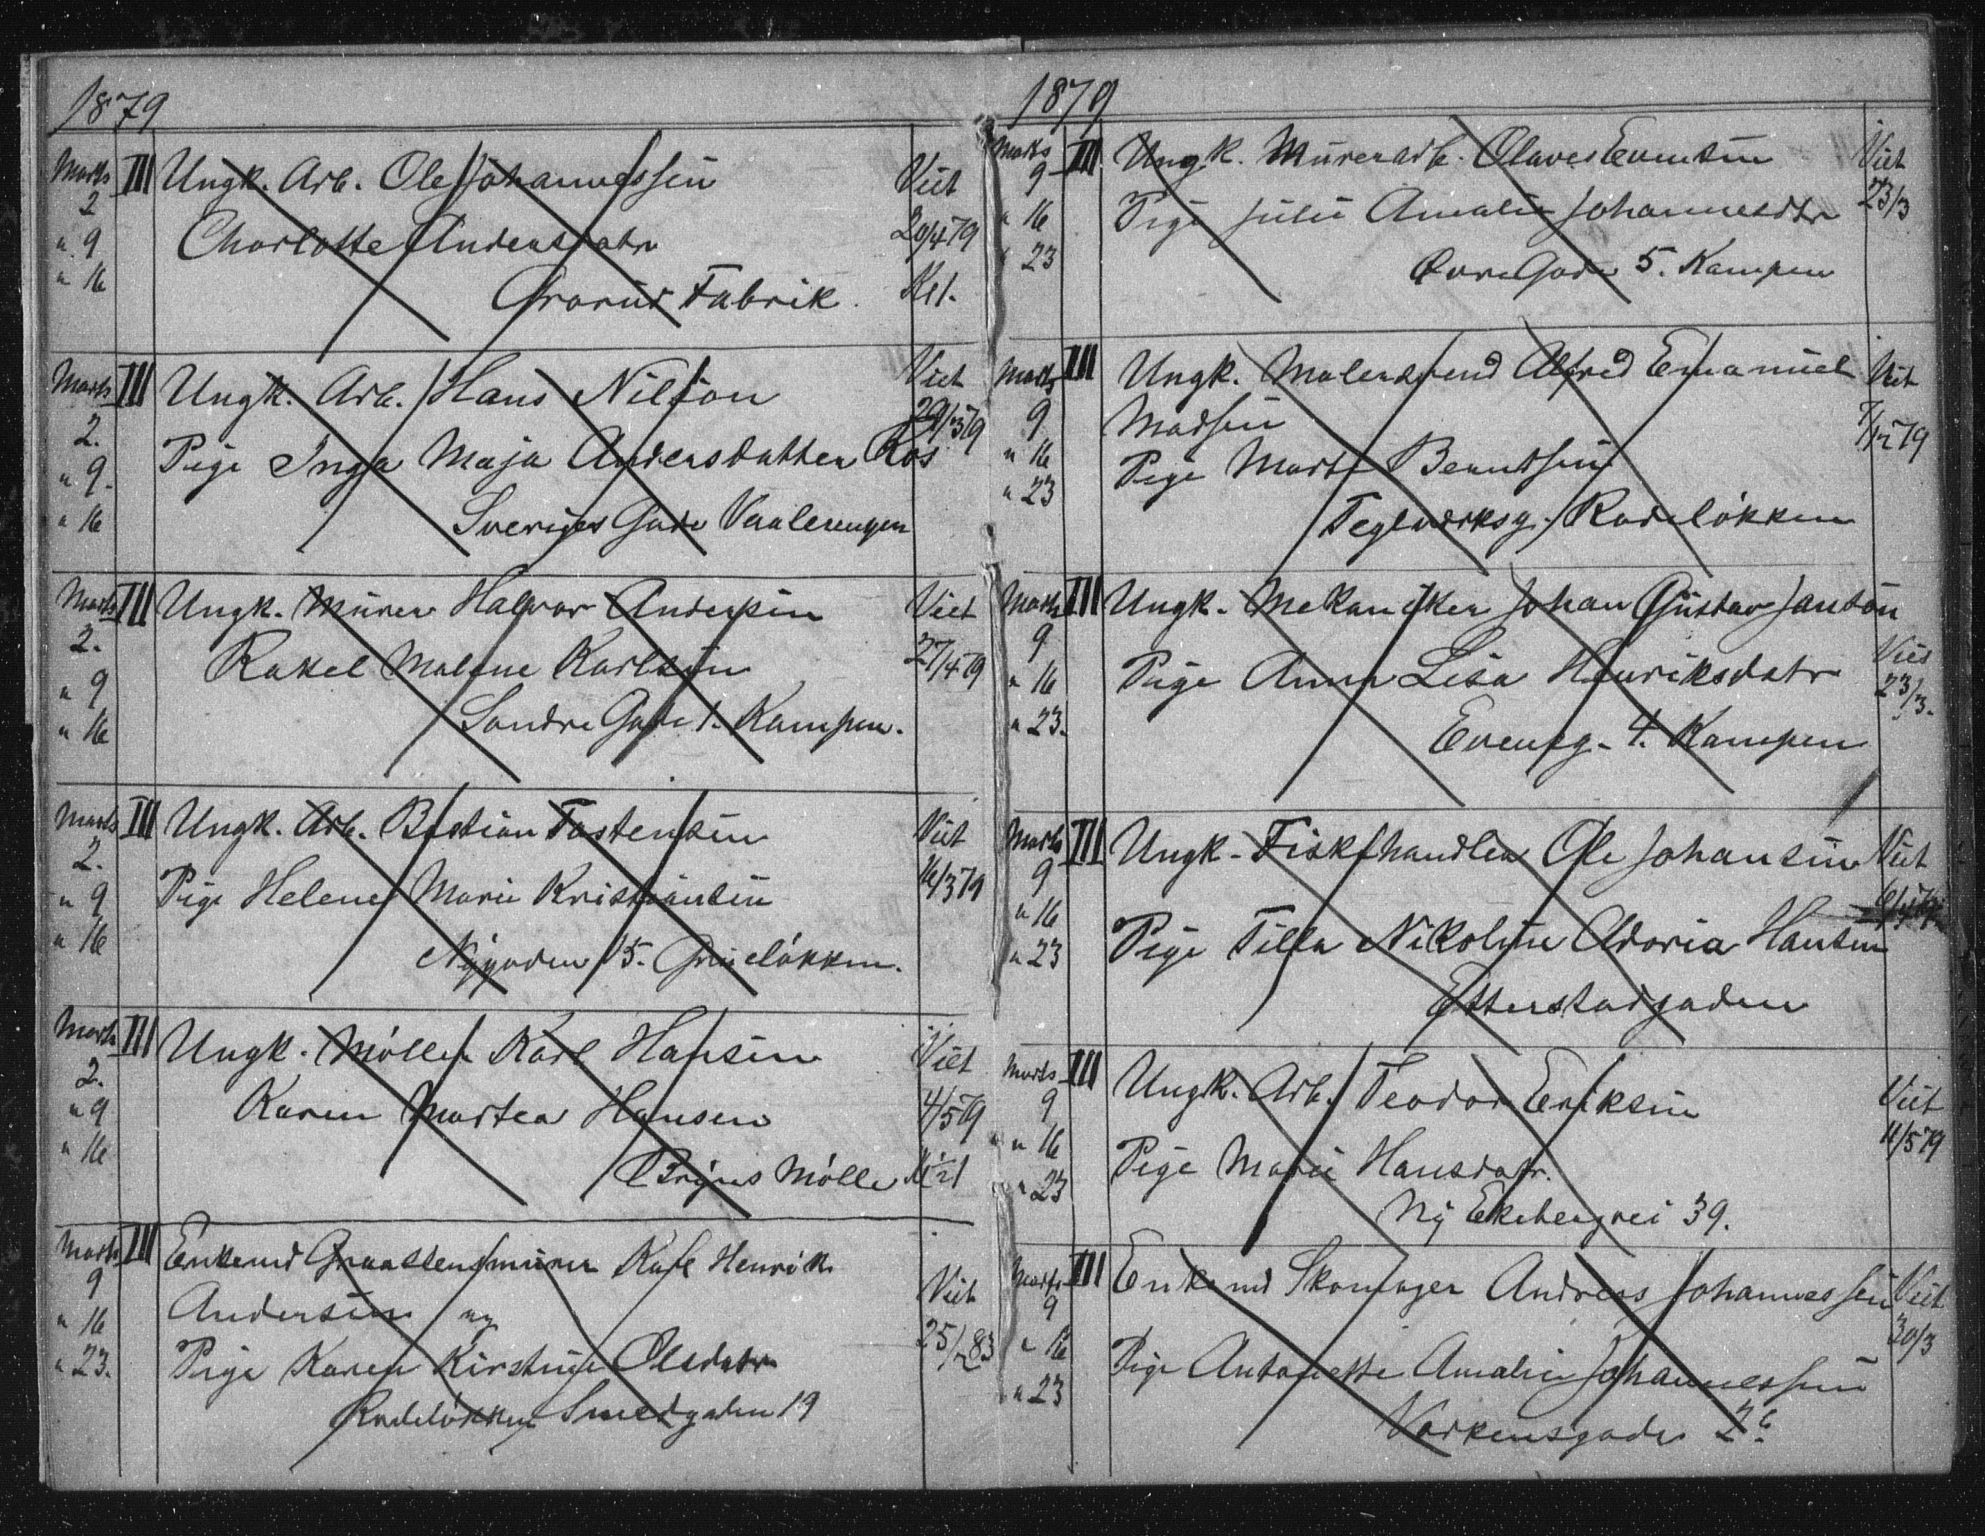 1879
Marts III Ungk. Arb. Ole Johannessen Viet
2 Charlotte Andersdatr 20/4 79
" 9 Grorud Fabrik. Kl.
" 16
Marts III Ungk. Arb. Hans Nilson Viet
2. 29/3 79
" 9. Pige Inga Maja Andersdatter Ros
" 16 Sveriges Gade Vaalerengen
Marts III Ungk. Murer Halvor Andersen Viet
2. Rakel Malene Karlsen 27/4 79
" 9 Søndre Gade 1. Kampen.
" 16
Marts III Ungk. Arb. Bastian Tostensen Viet
2. Pige Helene Marie Kristiansen 16/3 79
" 9 Nygaden 15. Grüneløkken.
" 16
Marts III Ungk. Møller Karl Hansen Viet
2. Karen Martea Hansen 4/5 79
" 9 Brÿns Mølle
" 16
Marts III Enkemd Graastensmurer Karl Henrik
9 Andersen og Viet
" 16 Pige Karen Kirstine Olsdatr 25/ 83
" 23. Rodeløkken Smedgaden 19
1879
Marts III Ungk. Murerarb. Olaves Evensen Viet
9 Pige Julie Amalie Johannesdtr 23/3
" 16 Øvre Gade 5. Kampen
" 23
Marts III Ungk. Malersvend Alfred Emanuel Viet
9 Madsen 7/12 79
" 16 Pige Marte Berntsen
" 23 Teglverksg. Rodeløkken
Marts III Ungk. Mekaniker Johan Gustav Janson
9 Pige Anna Lisa Henriksdatr Viet
" 16 23/3.
" 23. Evensg. 4. Kampen
Marts III Ungk. Fiskehandler Ole Johansen Viet
9
" 16 Pige Tilla Nikoline Adoria Hansen
" 23 Etterstadgaden
Marts III Ungk. Arb. Teodor Eriksen Viet
9 11/5 79
" 16 Pige Marie Hansdatr.
" 23 Ny Ekebergvei 39.
Marts III Enkemd Skomager Andreas Johannessen Viet
9 30/3
" 16 Pige Antonette Amalie Johannessen
" 23 Verkensgade 26